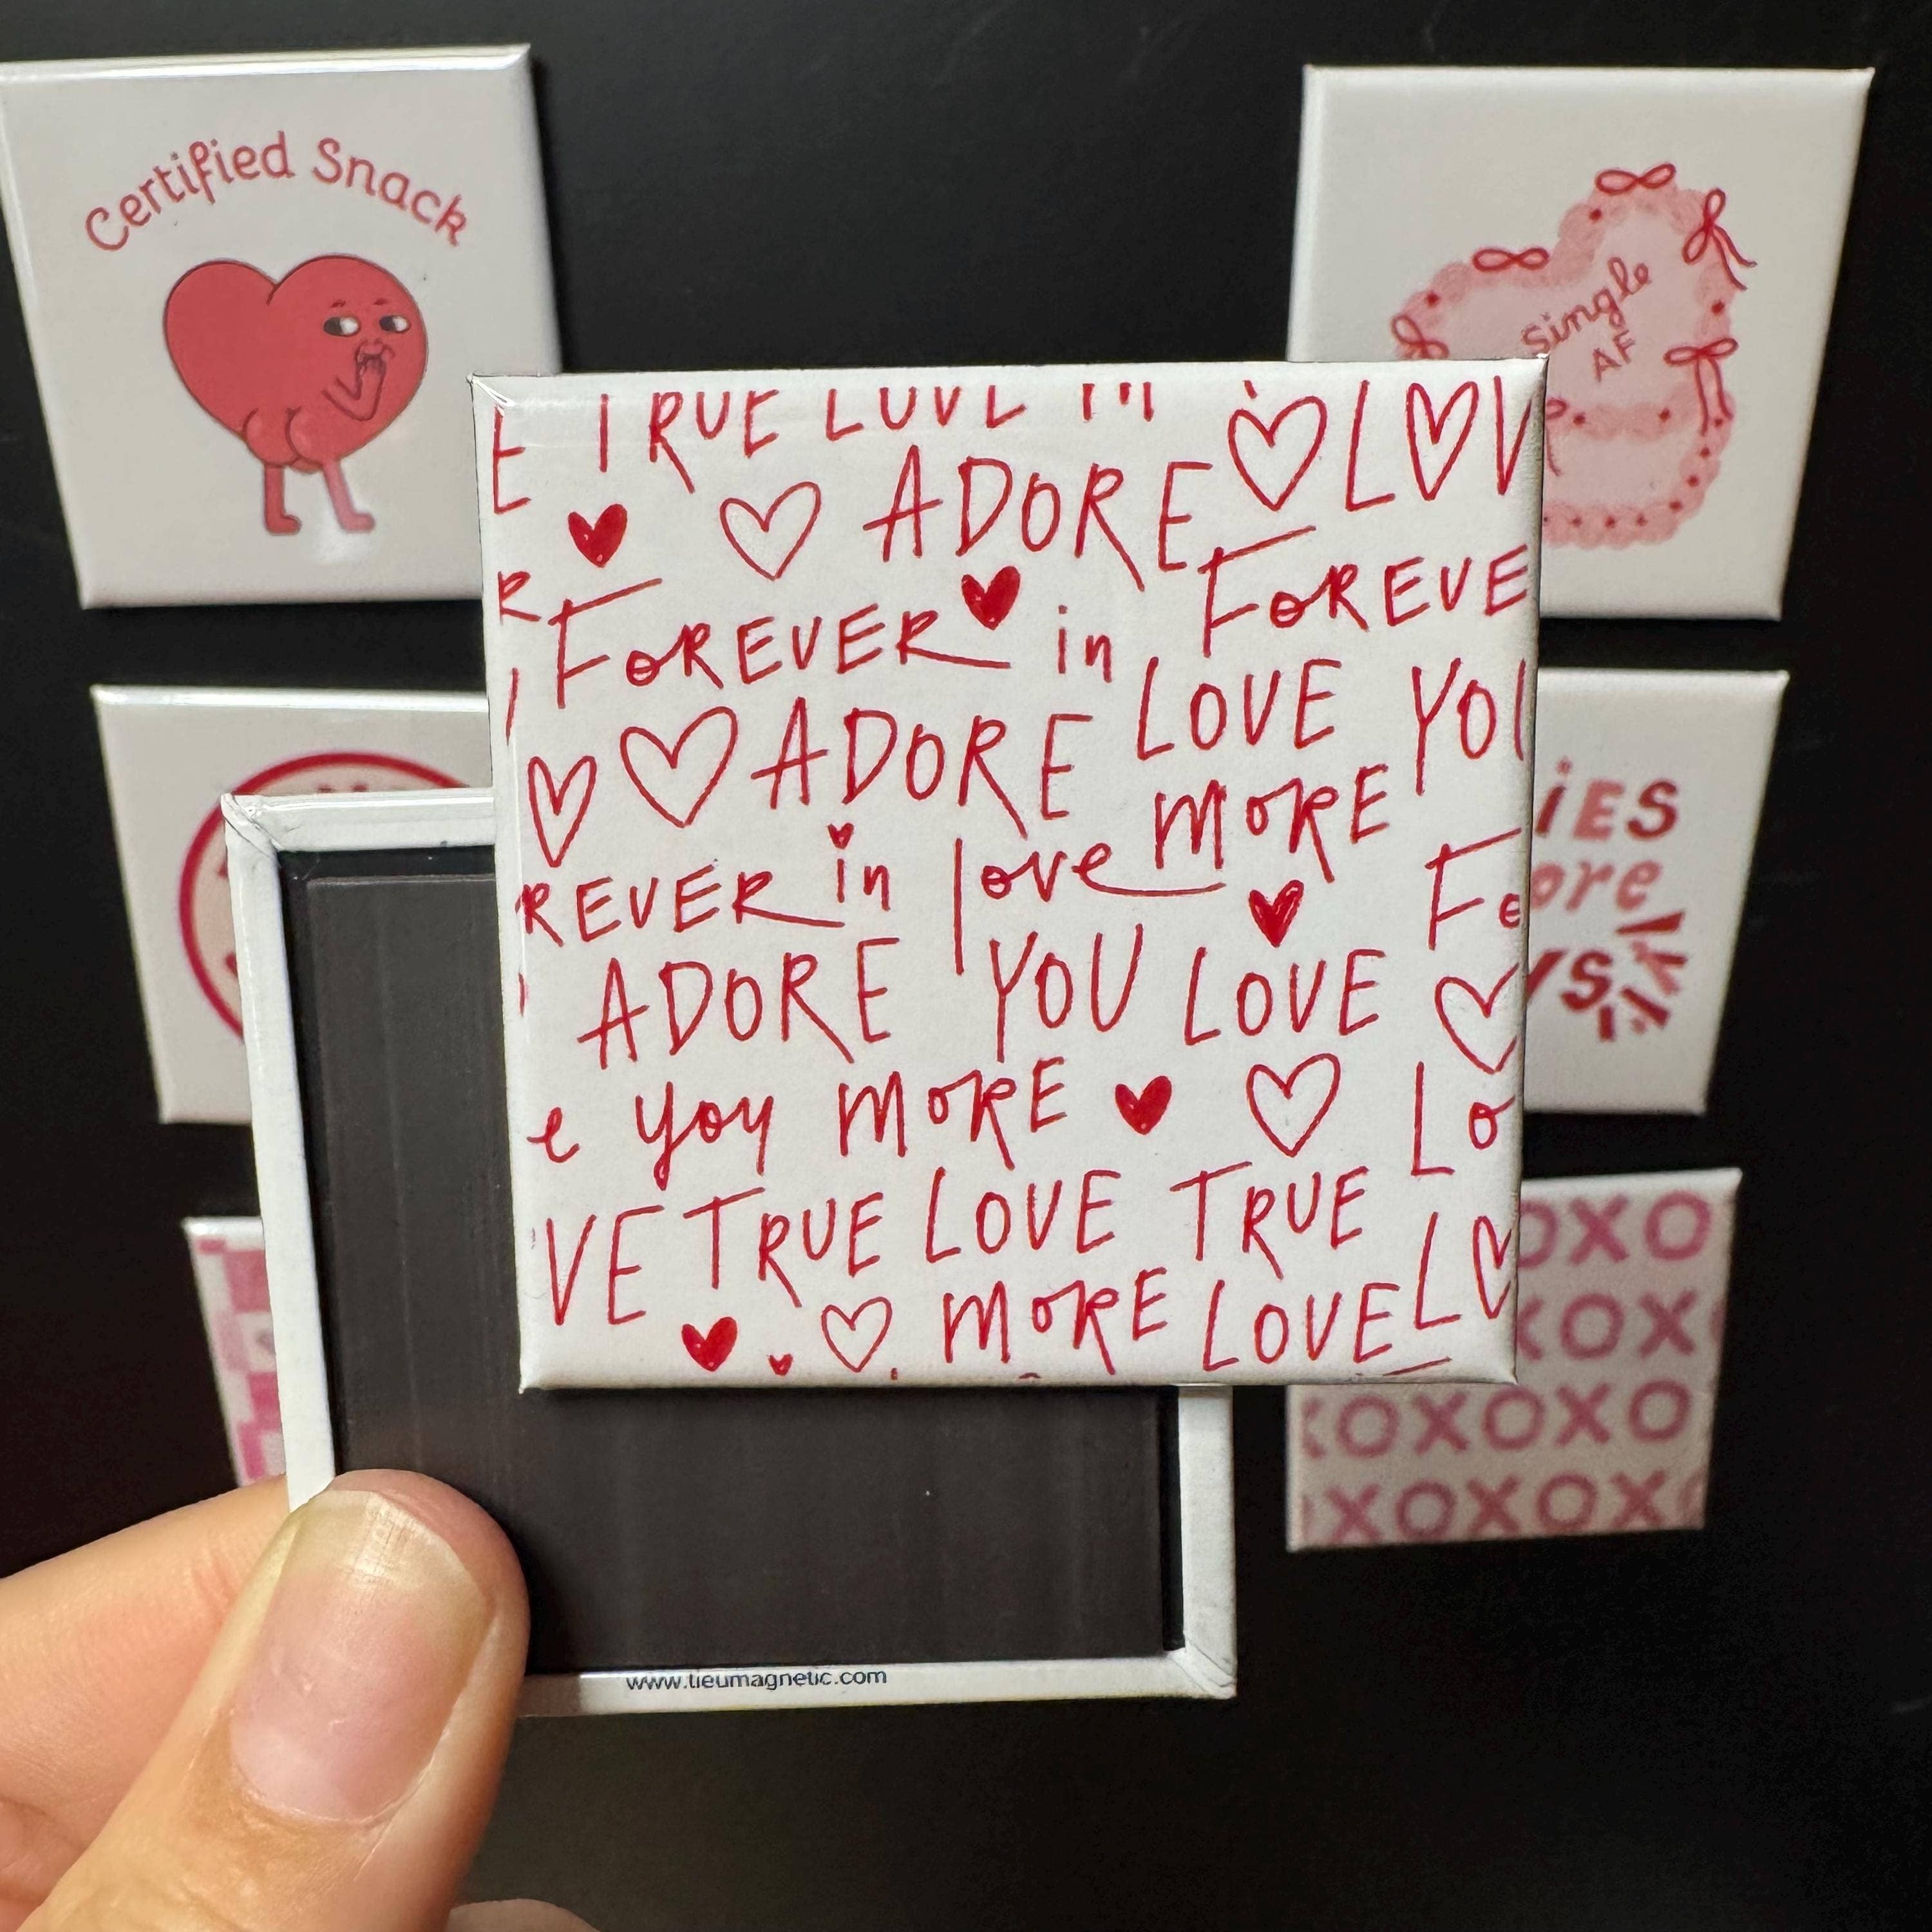 Certified Snack
Single
AF
E TRUE LOVE in
ADORE LOV
R FOREVER in FOREVE
ADORE LOVE YOU
REVER in love MORE Fo
ADORE YOU LOVE
e you MORE Lo
VE TRUE LOVE TRUE
MORE LOVE LO
iES
ore
YS
OXO
XOXOX
XOXOXO
XOXOXOX
www.tieumagnetic.com